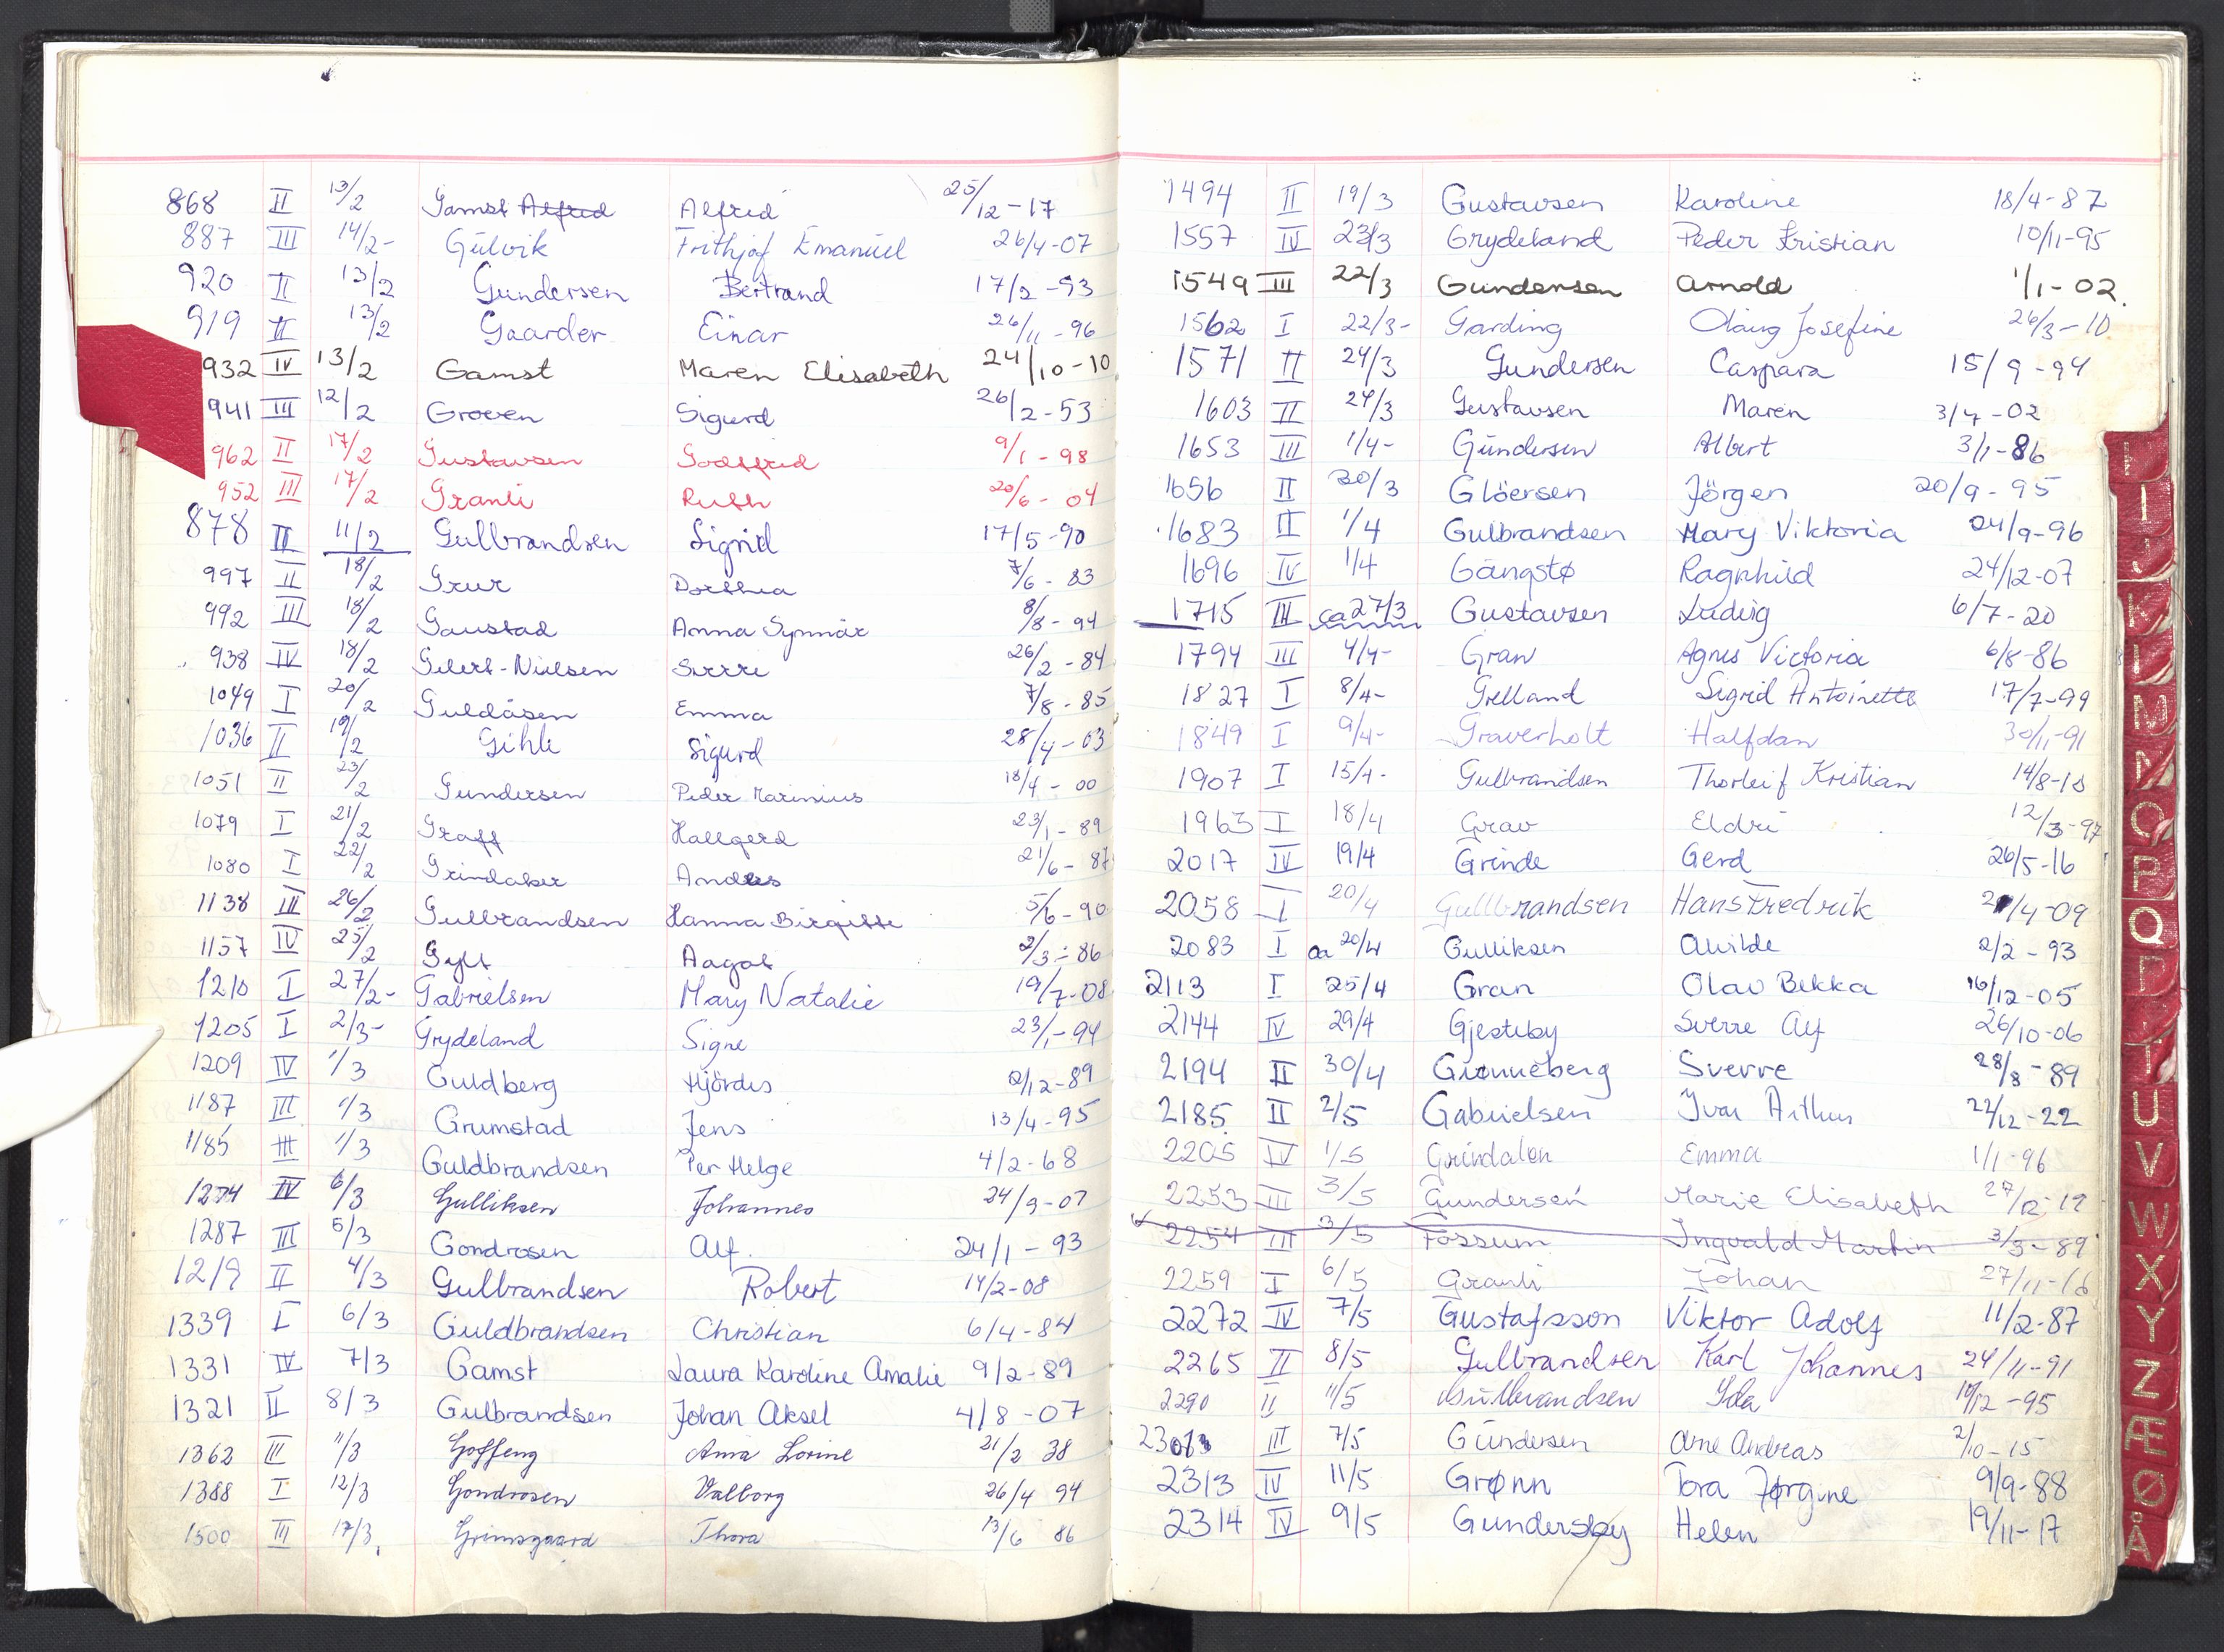 868 II 13/2 Gamst Alfred Alfred 25/12-17
887 III 14/2- Gulvik Frithjof Emanuel 26/4-07
920 II 13/2 Gundersen Bertrand 17/2-93
919 II 13/2 Gaarder Einar 26/11-96
932 IV 13/2 Gamst Maren Elisabeth 24/10-10
941 III 12/2 Groven Sigurd 26/2-53
962 II 17/2 Gustavsen Godtfred 9/1-98
952 III 17/2 Granli Ruth 20/6-04
878 II 11/2 Gulbrandsen Sigrid 17/5-90
997 II 18/2 Grur Dorthea 7/6-83
992 III 18/2 Gaustad Anna Synnøve 8/8-94
938 IV 18/2 -Nielsen Sverre 26/2-84
1049 I 20/2 Guldåsen Emma 7/8-85
1036 II 19/2 Gihle Sigurd 28/4-03
1051 II 23/2 Gundersen Peder Marinius 18/4-00
1079 I 21/2 Graff Hallgerd 23/1-89
1080 I 22/2 Grindaker Anders 21/6-87
1138 III 26/2 Gulbrandsen Hanna Birgitte 5/6-90
1157 IV 25/2 Aagot 2/3-86
1210 I 27/2- Gabrielsen Mary Natalie 19/7-08
1205 I 2/3- Grydeland Signe 23/1-94
1209 IV 1/3 Guldberg Hjördis 2/12-89
1187 III 1/3 Grumstad Jens 13/4-95
1185 III 1/3 Guldbrandsen Per Helge 4/2-68
1274 IV 6/3 Gulliksen Johannes 24/9-07
1287 III 5/3 Gondrosen Alf. 24/1-93
1219 II 4/3 Gulbrandsen Robert 14/2-08
1339 I 6/3 Guldbrandsen Christian 6/4-84
1331 IV 7/3 Gamst Laura Karoline Amalie 9/2-89
1321 II 8/3 Gulbrandsen Johan Aksel 4/8-07
1362 III 11/3 Goffeng Anna Lovine 21/2 38
1388 I 12/3 Gondrosen Valborg 26/4 94
1500 III 17/3. Grimsgaard Thora 13/6 86
1494 II 19/3 Gustavsen Karoline 18/4-87
1557 IV 23/3 Grydeland Peder Kristian 10/11-95
1549 III 22/3 Gundersen Arnold 1/1-02.
1562 I 22/3- Garding Olaug Josefine 26/3-10
1571 II 24/3 Gundersen Caspara 15/9-94
1603 II 24/3 Gustavsen Maren 3/4-02
1653 III 1/4- Gundersen Albert 3/1-86
1656 II 30/3 Glöersen Jörgen 20/9-95
1683 II 1/4 Gulbrandsen Mary Viktoria 24/9-96
1696 IV 1/4 Gångstø Ragnhild 24/12-07
1715 III ca 27/3 Gustavsen Ludvig 6/7-20
1794 III 4/4- Gran Agnes Victoria 6/8-86
1827 I 8/4- Grelland Sigrid Antoinette 17/7-99
1849 I 9/4- Graverholt Halfdan 30/11-91
1907 I 15/4- Gulbrandsen Thorleif Kristian 14/8-10
1963 I 18/4 Grav Eldri 12/3-97
2017 IV 19/4 Grinde Gerd 26/5-16
2058 I 20/4 Gullbrandsen Hans Fredrik /4-09
2083 I ca 20/4 Gulliksen Alvilde 2/2-93
2113 I 25/4 Gran Olav Bekka 16/12-05
2144 IV 29/4 Gjesteby Sverre Alf 26/10-06
2194 II 30/4 Grønneberg Sverre 28/8-89
2185. II 2/5 Gabrielsen Ivar Arthur 22/12-22
2205 IV 1/5 Grindalen Emma 1/1-96
2253 III 3/5 Gundersen Marie Elisabeth 27/12-12
2254 III 3/5 Fossum Ingvald Martin 3/3-89
2259 I 6/5 Granli Johan 27/11-16
2272 IV 7/5 Gustafsson Viktor Adolf 11/2-87
2265 II 8/5 Gulbrandsen Karl Johannes 24/11-91
2290 II 11/5 Gulbrandsen Ida 10/12-95
III 7/5 Gundersen Arne Andreas 2/10-15
2313 IV 11/5 Grønn Tora Jørgine 9/9-88
2314 IV 9/5 Gundersby Helen 19/11-17
I
J
K
L
M
N
O
P
Q
R
T
U
V
W
X
Y
Z
Æ
Ø
Å